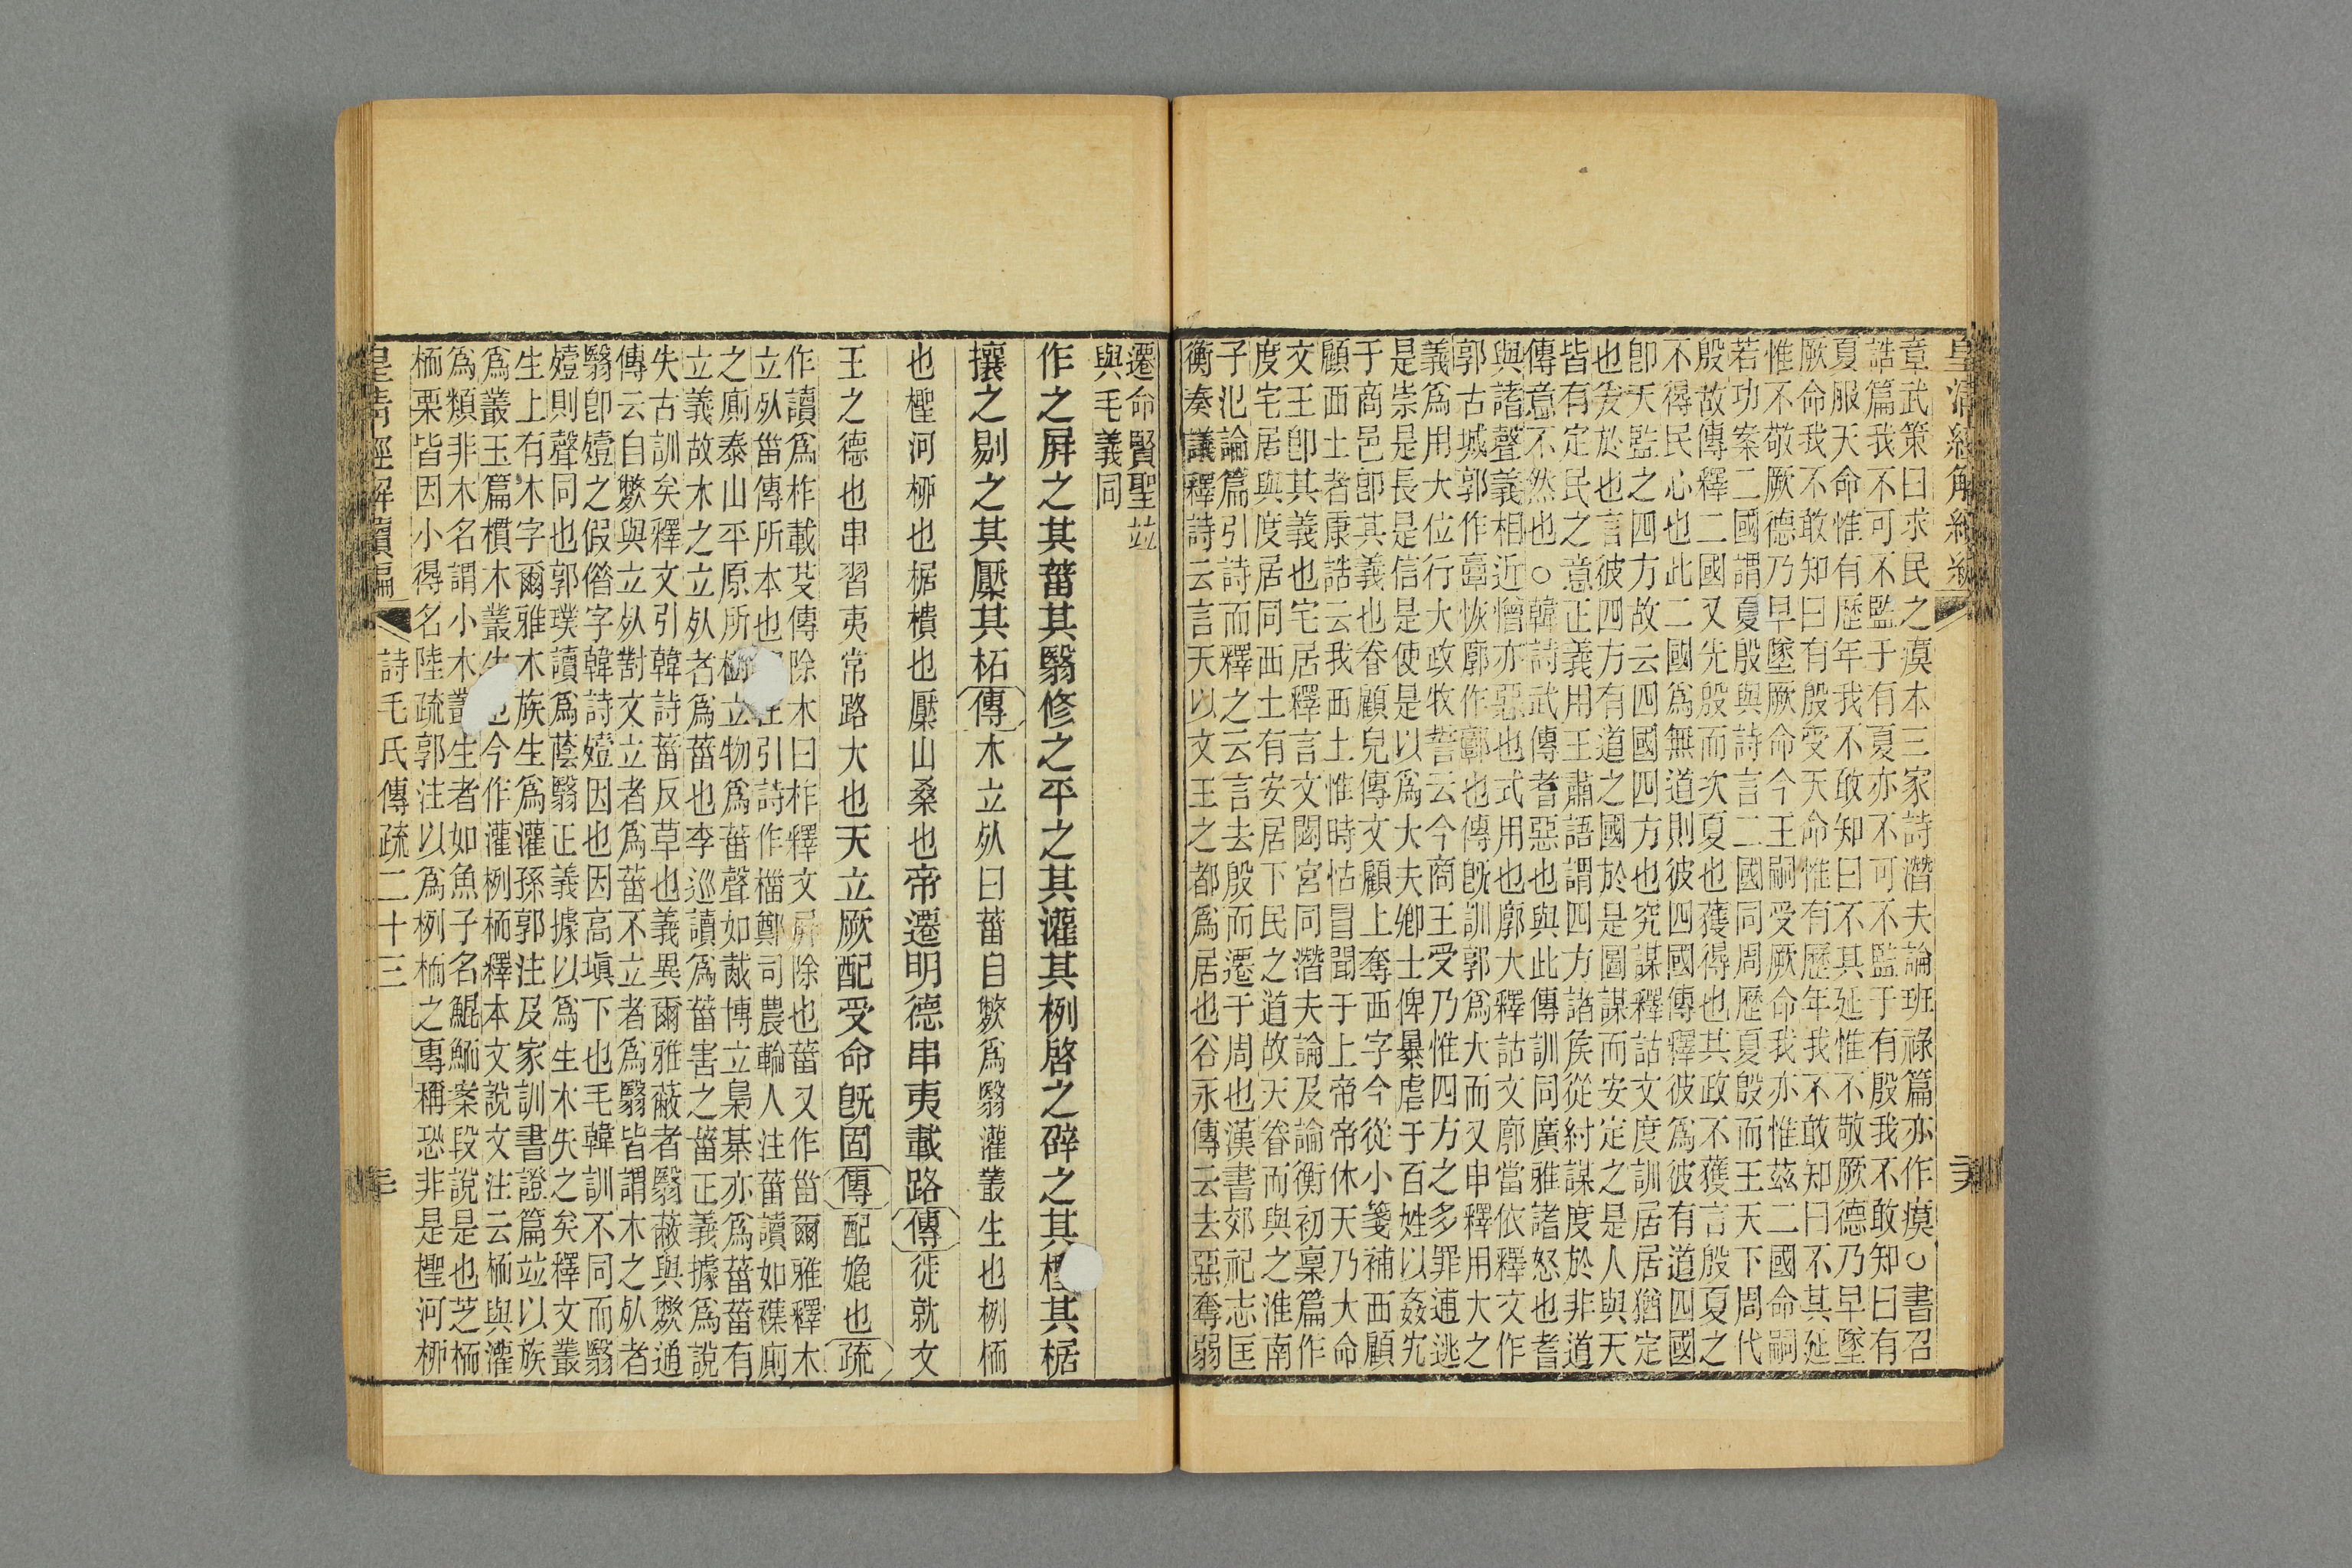 章武策曰求民之瘼本三家詩潛夫論班祿篇亦作瘼○書召
誥篇我不可不監于有夏亦不可不監于有殷我不敢知曰有
夏服天命惟有歷年我不敢知曰不其延惟不敬厥德乃早墜
厥命我不敢知曰有殷受天命惟有歷年我不敢知曰不其延
惟不敬厥德乃早墜厥命今王嗣受厥命我亦惟茲二國命嗣
若功案二國謂夏殷與詩言二國同周歷夏殷而王天下周代
殷故傳釋二國又先殷而次夏也獲得也其政不獲言殷夏之
不得民心也此二國爲無道則彼四國傳釋彼爲彼有道四國
卽天監之四方故云四國四方也究謀釋詁文度訓居居猶定
也爰於也言彼四方有道之國於是圖謀而安定之是人與天
皆有定民之意正義用王肅語謂四方諸矦從紂謀度於非道
傳意不然也○韓詩武傳耆惡也與此傳訓同廣雅諸怒也耆
與諸聲義相近憎亦惡也式用也廓大釋詁文廓當依釋文作
郭古城郭郭作𩫏恢廓作鄺也傳旣訓郭爲大而又申釋用大之
義爲用大位行大政牧誓云今商王受乃惟四方之多罪逋逃
是崇是長是信是使是以爲大夫卿士俾暴虐于百姓以姦宄
于商邑卽其義也眷顧皃傳文顧上奪西字今從小箋補西顧
顧西土者康誥云我西土惟時怙冒聞于上帝帝休天乃大命
文王卽其義也宅居釋言文閟宮同潛夫論及論衡初稟篇作
度宅居與度居同西土有安居下民之道故天眷而與之淮南
子氾論篇引詩而釋之云言去殷而遷于周也漢書郊祀志匡
衡奏議釋詩云言天以文王之都爲居也谷永傳云去惡奪弱
遷命賢聖竝
與毛義同
作之屛之其菑其翳修之平之其灌其栵啓之辟之其檉其椐
攘之剔之其檿其柘傳木立𣦸曰菑自獘爲翳灌叢生也栵栭
也檉河柳也椐樻也檿山桑也帝遷明德串夷載路傳徙就文
王之德也串習夷常路大也天立厥配受命旣固傳配媲也疏
作讀爲柞載芟傳除木曰柞釋文屛除也菑又作甾爾雅釋木
立𣦸甾傳所本也引詩作椔鄭司農輪人注菑讀如襍廁
之廁泰山平原所樹立物爲菑聲如胾博立梟棊亦爲菑菑有
立義故木之立𣦸者爲菑也李巡讀爲菑害之菑正義據爲說
失古訓矣釋文引韓詩菑反草也義異爾雅蔽者翳蔽與獘通
傳云自獘與立𣦸對文立者爲菑不立者爲翳皆謂木之𣦸者
翳卽㙪之假僭字韓詩㙪因也因高塡下也毛韓訓不同而翳
㙪則聲同也郭璞讀爲蔭翳正義據以爲生木失之矣釋文叢
生上有木字爾雅木族生爲灌孫郭注及家訓書證篇竝以族
爲叢玉篇樌木叢生也今作灌栵栭釋本文說文注云栭與灌
爲類非木名謂小木叢生者如魚子名鯤鮞案段說是也芝栭
栭栗皆因小得名陸疏郭注以爲栵栭之專稱恐非是檉河柳
詩毛氏傳疏二十三